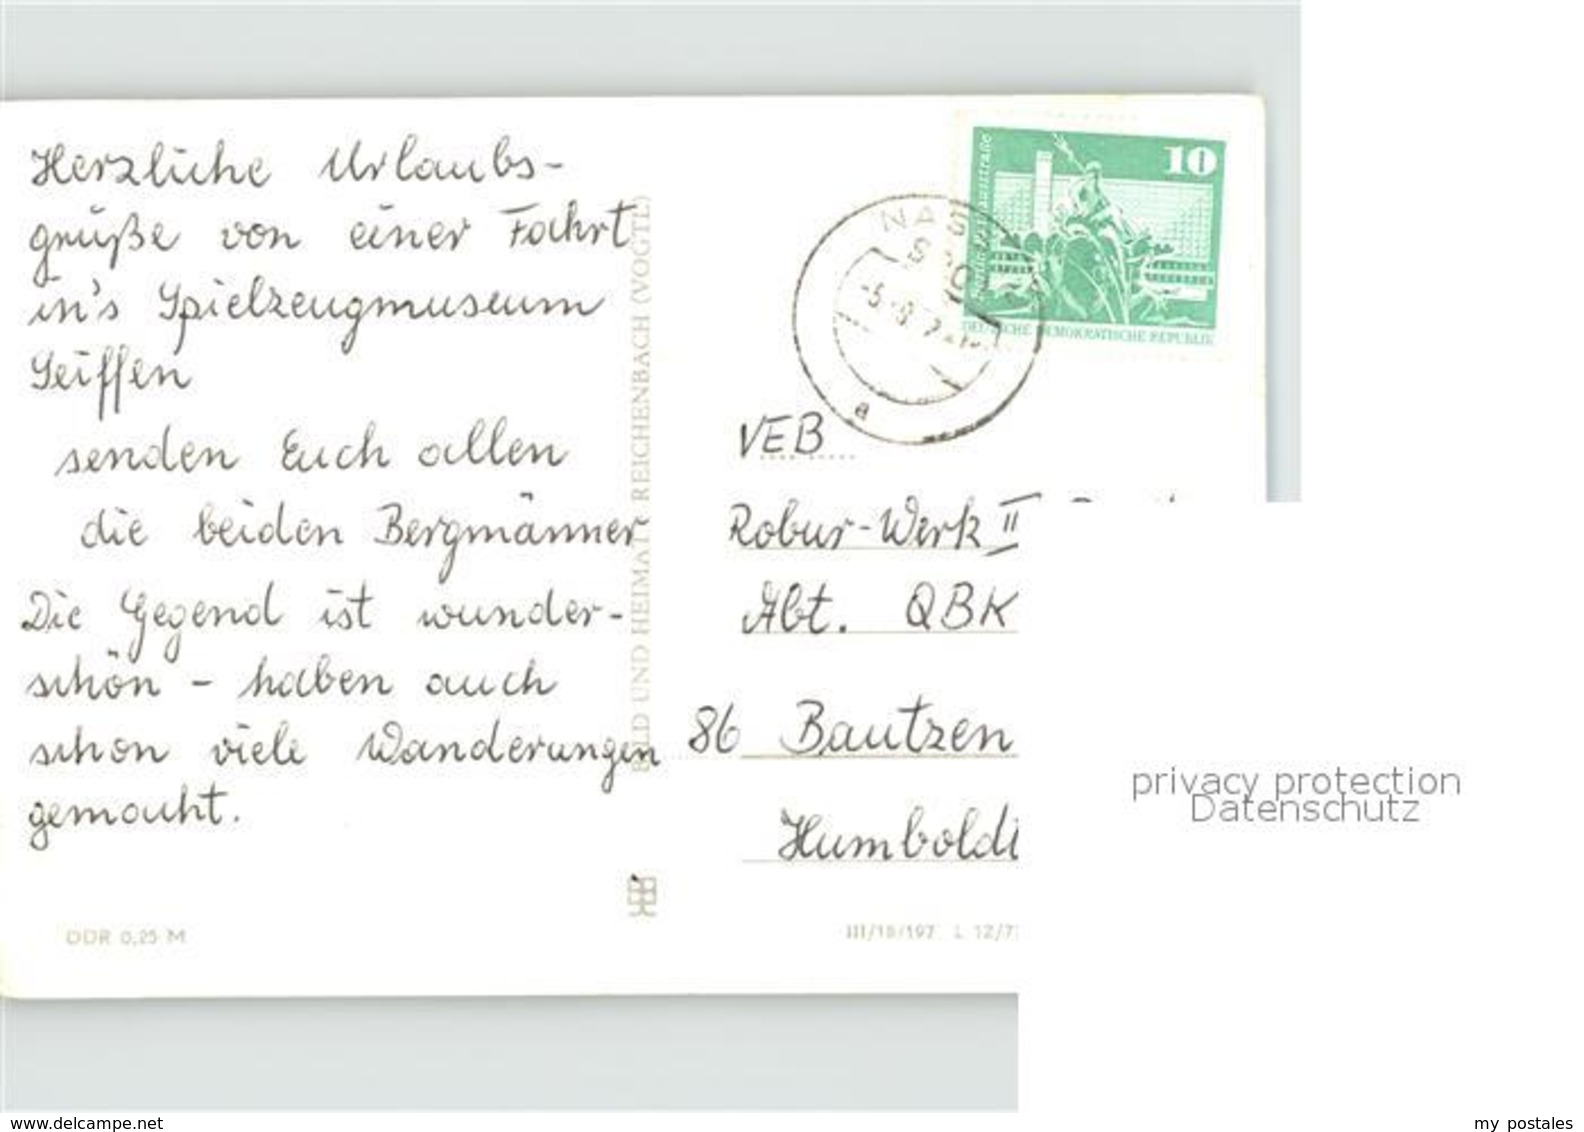 Herzliche Urlaubs-
grüße von einer Fahrt
in's Spielzeugmuseum
Seiffen
senden Euch allen
die beiden Bergmänner
Die Gegend ist wunder-
schön - haben auch
schon viele Wanderungen
gemacht.
DDR 0,25 M
BILD UND HEIMAT REICHENBACH (VOGTL)
10
DEUTSCHE DEMOKRATISCHE REPUBLIK
a
VEB
Robur-Werk II
Abt. QBK
86 Bautzen
Humboldt
III/18/197 L 12/7
privacy protection
Datenschutz
www.delcampe.net
my postales